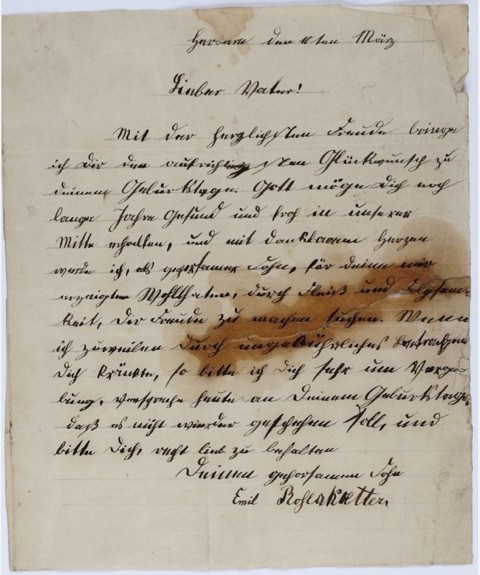 den 10ten März
Lieber Vater!
Mit der herzlichsten Freude bringe
ich Dir den aufrichtigsten Glückwunsch zu
deinem Geburtstage. Gott möge Dich noch
lange Jahre gesund und froh in unserer
Mitte erhalten, und mit dankbarem Herzen
werde ich, als gehorsamer Sohn, für deine mir
erzeigten Wohlthaten, durch Fleiß und Folgsam-
keit, Dir Freude zu machen suchen. Wenn
ich zuweilen durch ungebührliches Betragen
Dich kränkte, so bitte ich Dich sehr um Verge-
bung, verspreche heute an Deinem Geburtstage,
daß es nicht wieder geschehen soll, und
bitte Dich, recht lieb zu behalten
Deinen gehorsamen Sohn
Emil